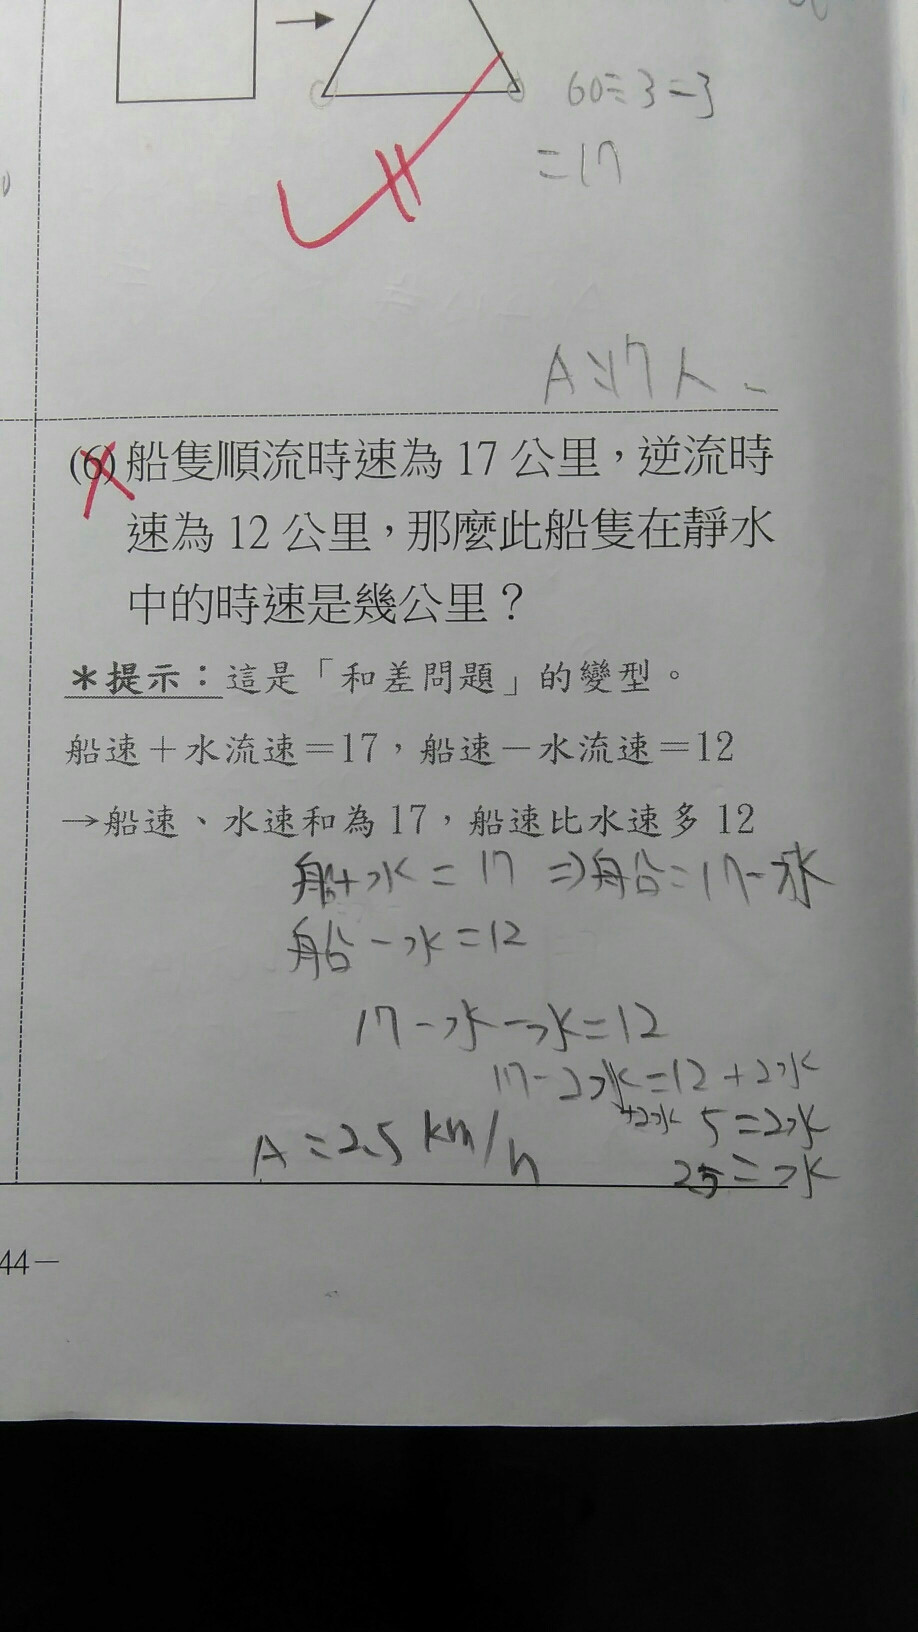 60÷3-3
=17
A:17人
(6)船隻順流時速為 17 公里，逆流時
速為 12 公里，那麼此船隻在靜水
中的時速是幾公里？
＊提示：這是「和差問題」的變型。
船速＋水流速＝17，船速－水流速＝12
→船速、水速和為 17，船速比水速多 12
船+水=17 ⇒船=17-水
船-水=12
17-水-水=12
17-2水=12+2水
+2水 5=2水
A:2.5 km/h
2.5=水
44－